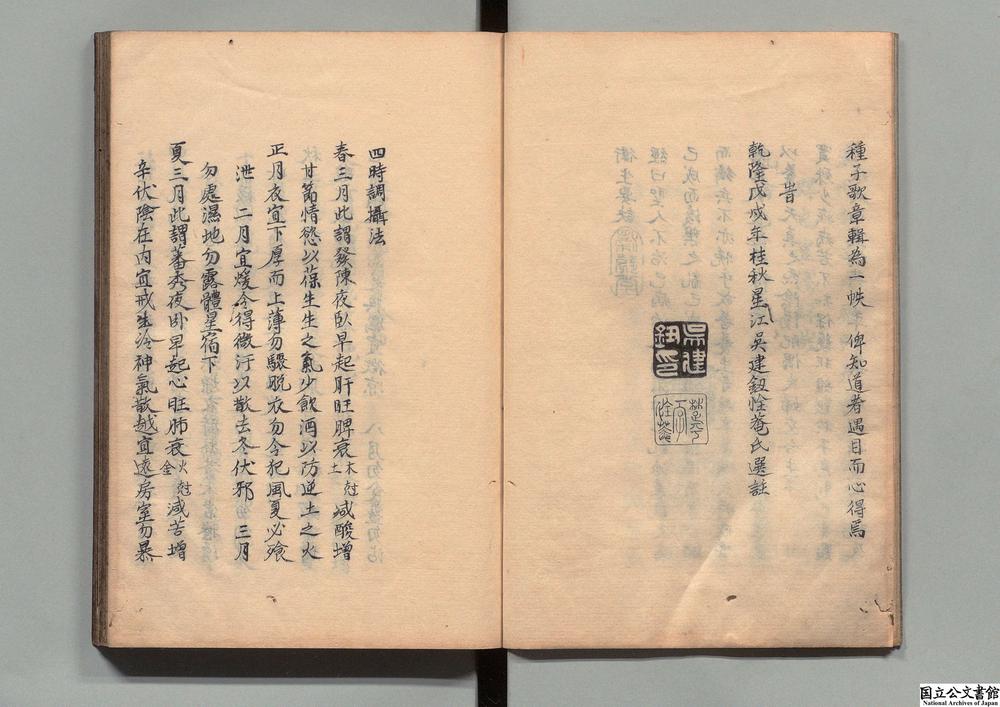 種子歌章輯為一帙俾知道者遇目而心得焉
旹
乾隆戊戌年桂秋星江吳建鈕恮菴氏選註
吳建鈕印
四時調攝法
春三月此謂發陳夜臥早起肝旺脾衰木尅土減酸增
甘節情慾以葆生生之氣少飲酒以防逆土之火
正月衣宜下厚而上薄勿驟脫衣勿令犯風夏必飱
泄 二月宜煖令得微汗以散去冬伏邪 三月
勿處濕地勿露體星宿下
夏三月此謂蕃秀夜卧早起心旺肺衰火尅金減苦增
辛伏陰在内宜戒生冷神氣散越宜遠房室勿暴
国立公文書館
National Archives of Japan